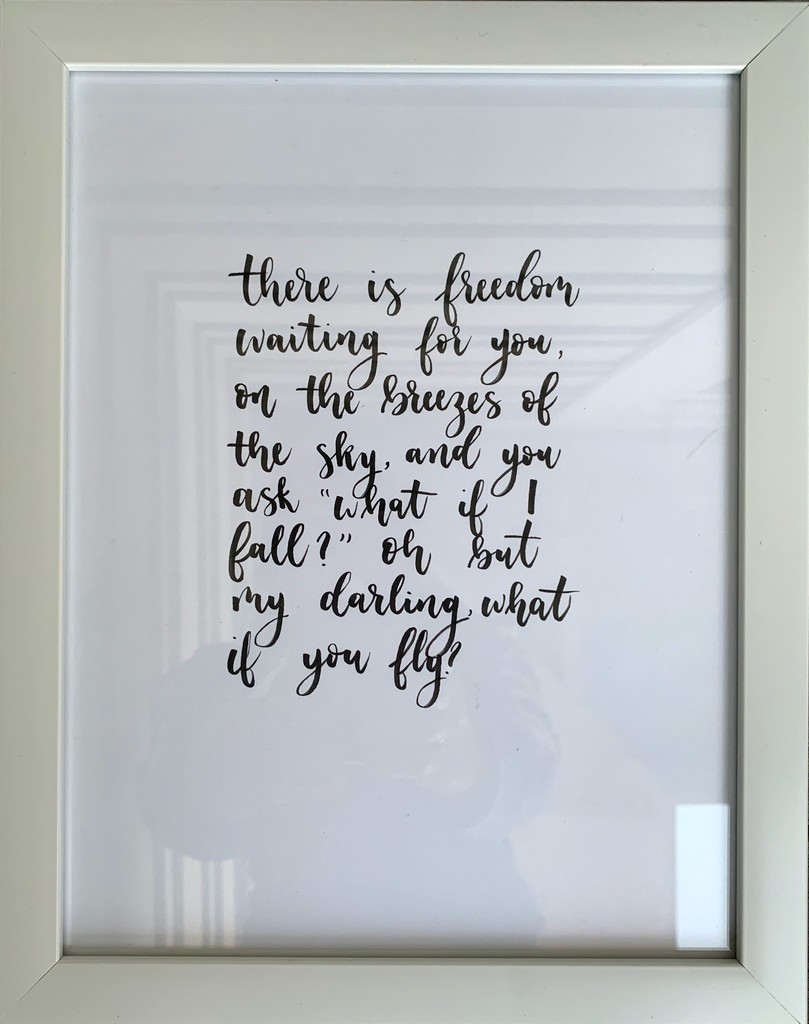 there is freedom
waiting for you,
on the breezes of
the sky, and you
ask "what if I
fall?" oh but
my darling, what
if you fly?